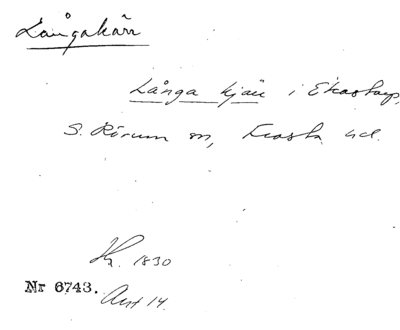 Långakärr
Långa kjärr i Ekastorp,
S. Rörum sn, Frosta hd.
1830
Nr 6743. Akt 14.